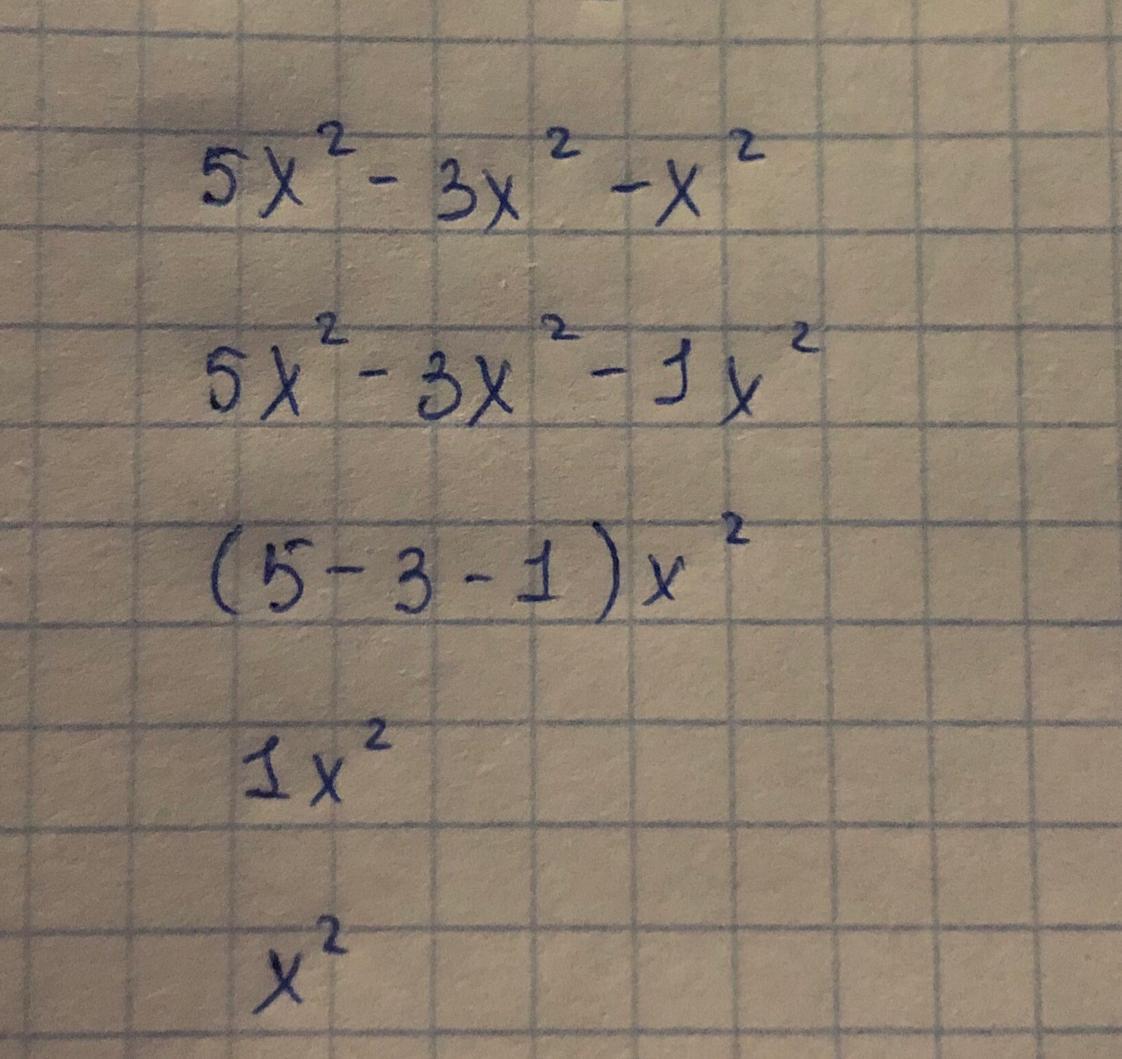 5x² - 3x² - x²
5x² - 3x² - 1x²
(5 - 3 - 1)x²
1x²
x²